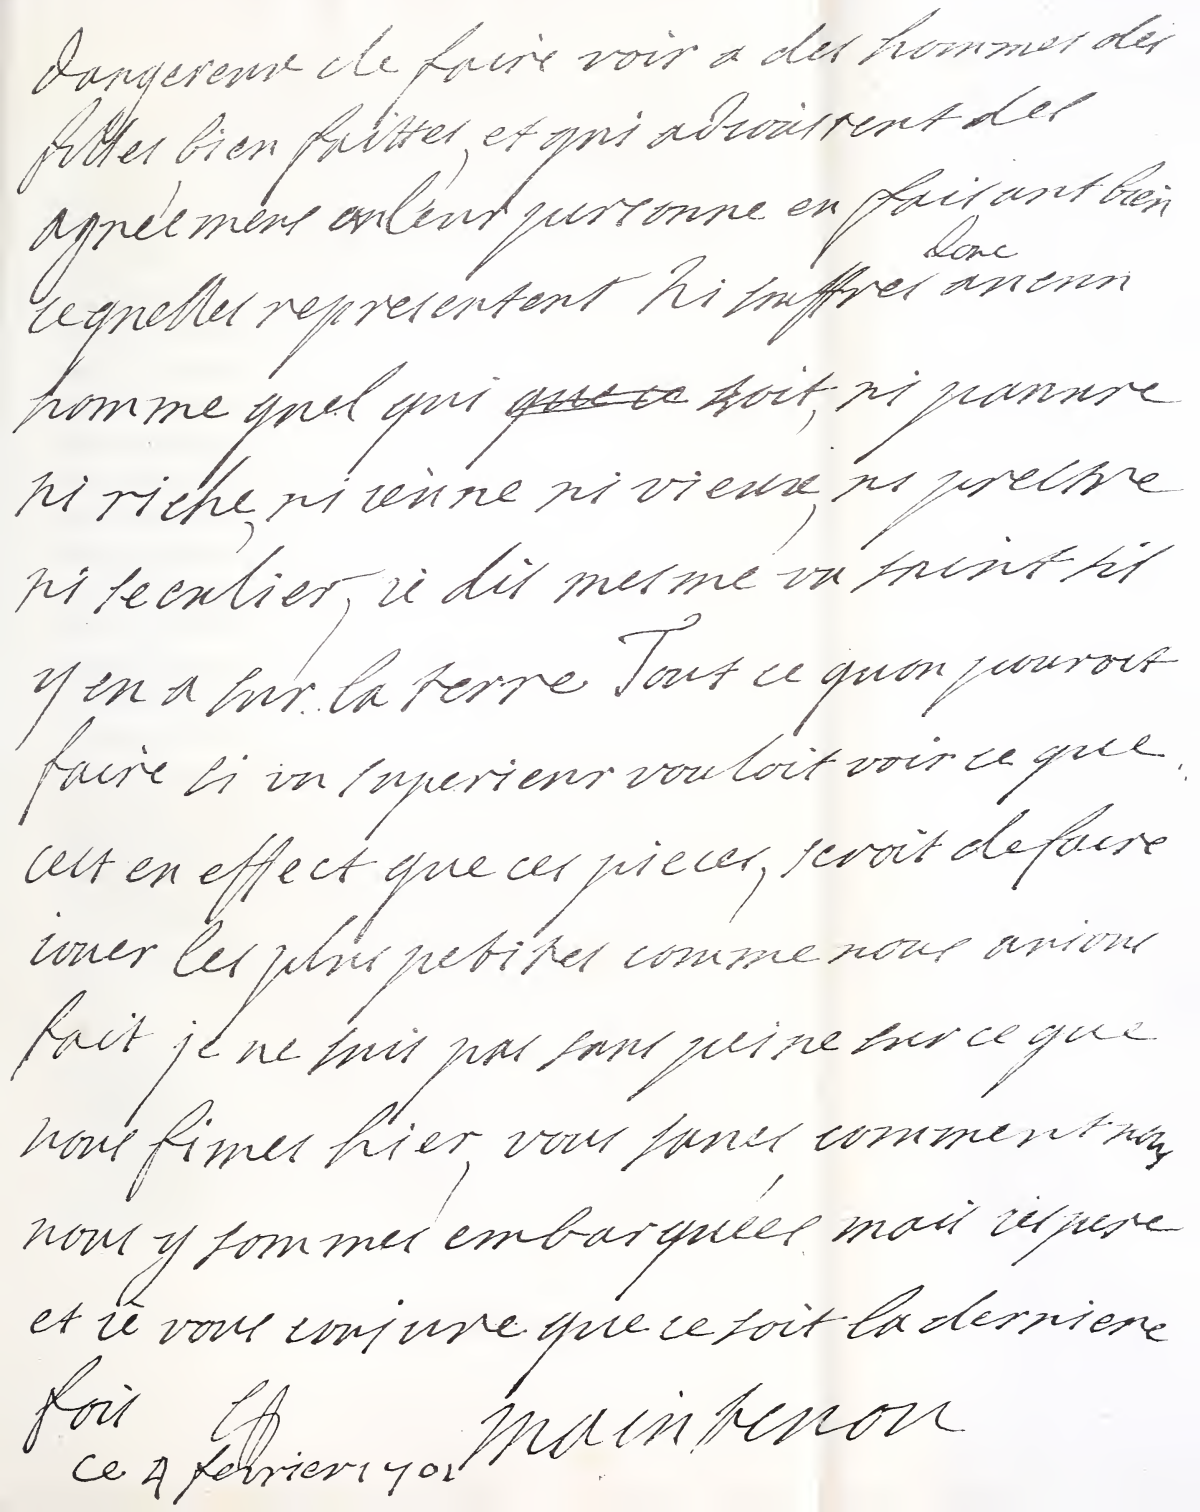 dangereux de faire voir a des hommes des
filles bien faittes, et qui adioustent des
agréemens en leur personne en faisant bien
ce quelles representent Ni souffres donc aucun
homme quel qui que ce soit, ni pauure
ni riche, ni ieune ni vieux, ni prestre
ni seculier, ie dis mesme vn saint sil
y en a sur la terre Tout ce quon pouroit
faire si vn superieur vouloit voir ce que
cest en effect que ces pieces, seroit de faire
iouer les plus petites comme nous auions
fait je ne suis pas sans peine sur ce que
nous fimes hier, vous saues comment nous
nous y sommes embarquées mais iespere
et ie vous conjure que ce soit la derniere
fois Maintenon
ce 4 feurier 1701